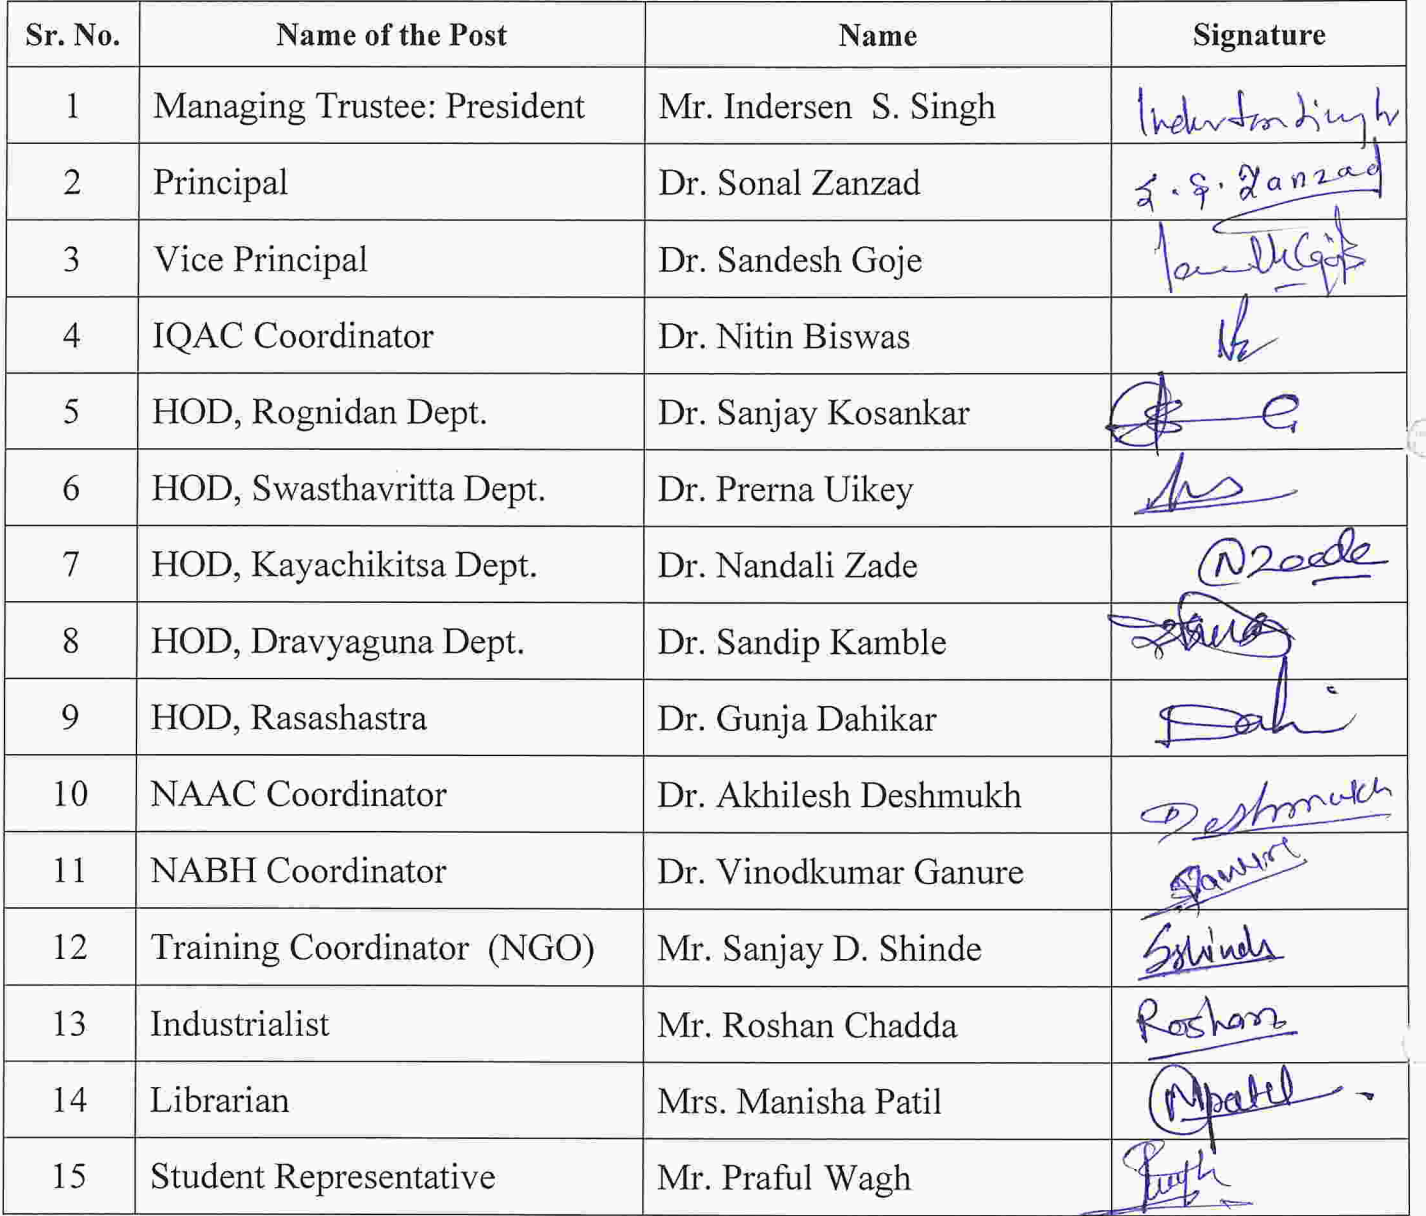 Sr. No. Name of the Post Name Signature
1 Managing Trustee: President Mr. Indersen S. Singh
2 Principal Dr. Sonal Zanzad S. S. Zanzad
3 Vice Principal Dr. Sandesh Goje
4 IQAC Coordinator Dr. Nitin Biswas
5 HOD, Rognidan Dept. Dr. Sanjay Kosankar
6 HOD, Swasthavritta Dept. Dr. Prerna Uikey
7 HOD, Kayachikitsa Dept. Dr. Nandali Zade
8 HOD, Dravyaguna Dept. Dr. Sandip Kamble
9 HOD, Rasashastra Dr. Gunja Dahikar
10 NAAC Coordinator Dr. Akhilesh Deshmukh Deshmukh
11 NABH Coordinator Dr. Vinodkumar Ganure
12 Training Coordinator (NGO) Mr. Sanjay D. Shinde
13 Industrialist Mr. Roshan Chadda Roshan
14 Librarian Mrs. Manisha Patil Mpatil
15 Student Representative Mr. Praful Wagh